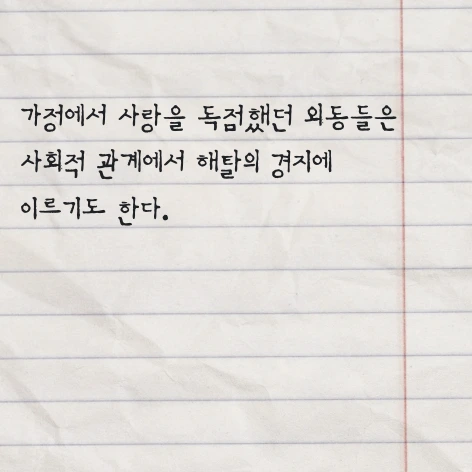 가정에서 사랑을 독점했던 외동들은
사회적 관계에서 해탈의 경지에
이르기도 한다.